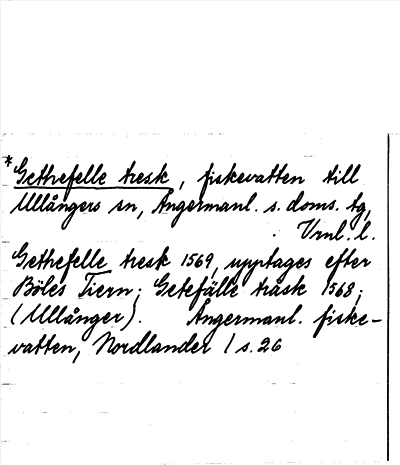 *Gethefelle tresk, fiskevatten till
Ullångers sn, Ångermanl. s. doms. tg,
Vrnl. l.
Gethefelle tresk 1569, upptages efter
Böles Tiern; Getefälle träsk 1568;
(Ullånger). Ångermanl. fiske-
vatten, Nordlander I s. 26